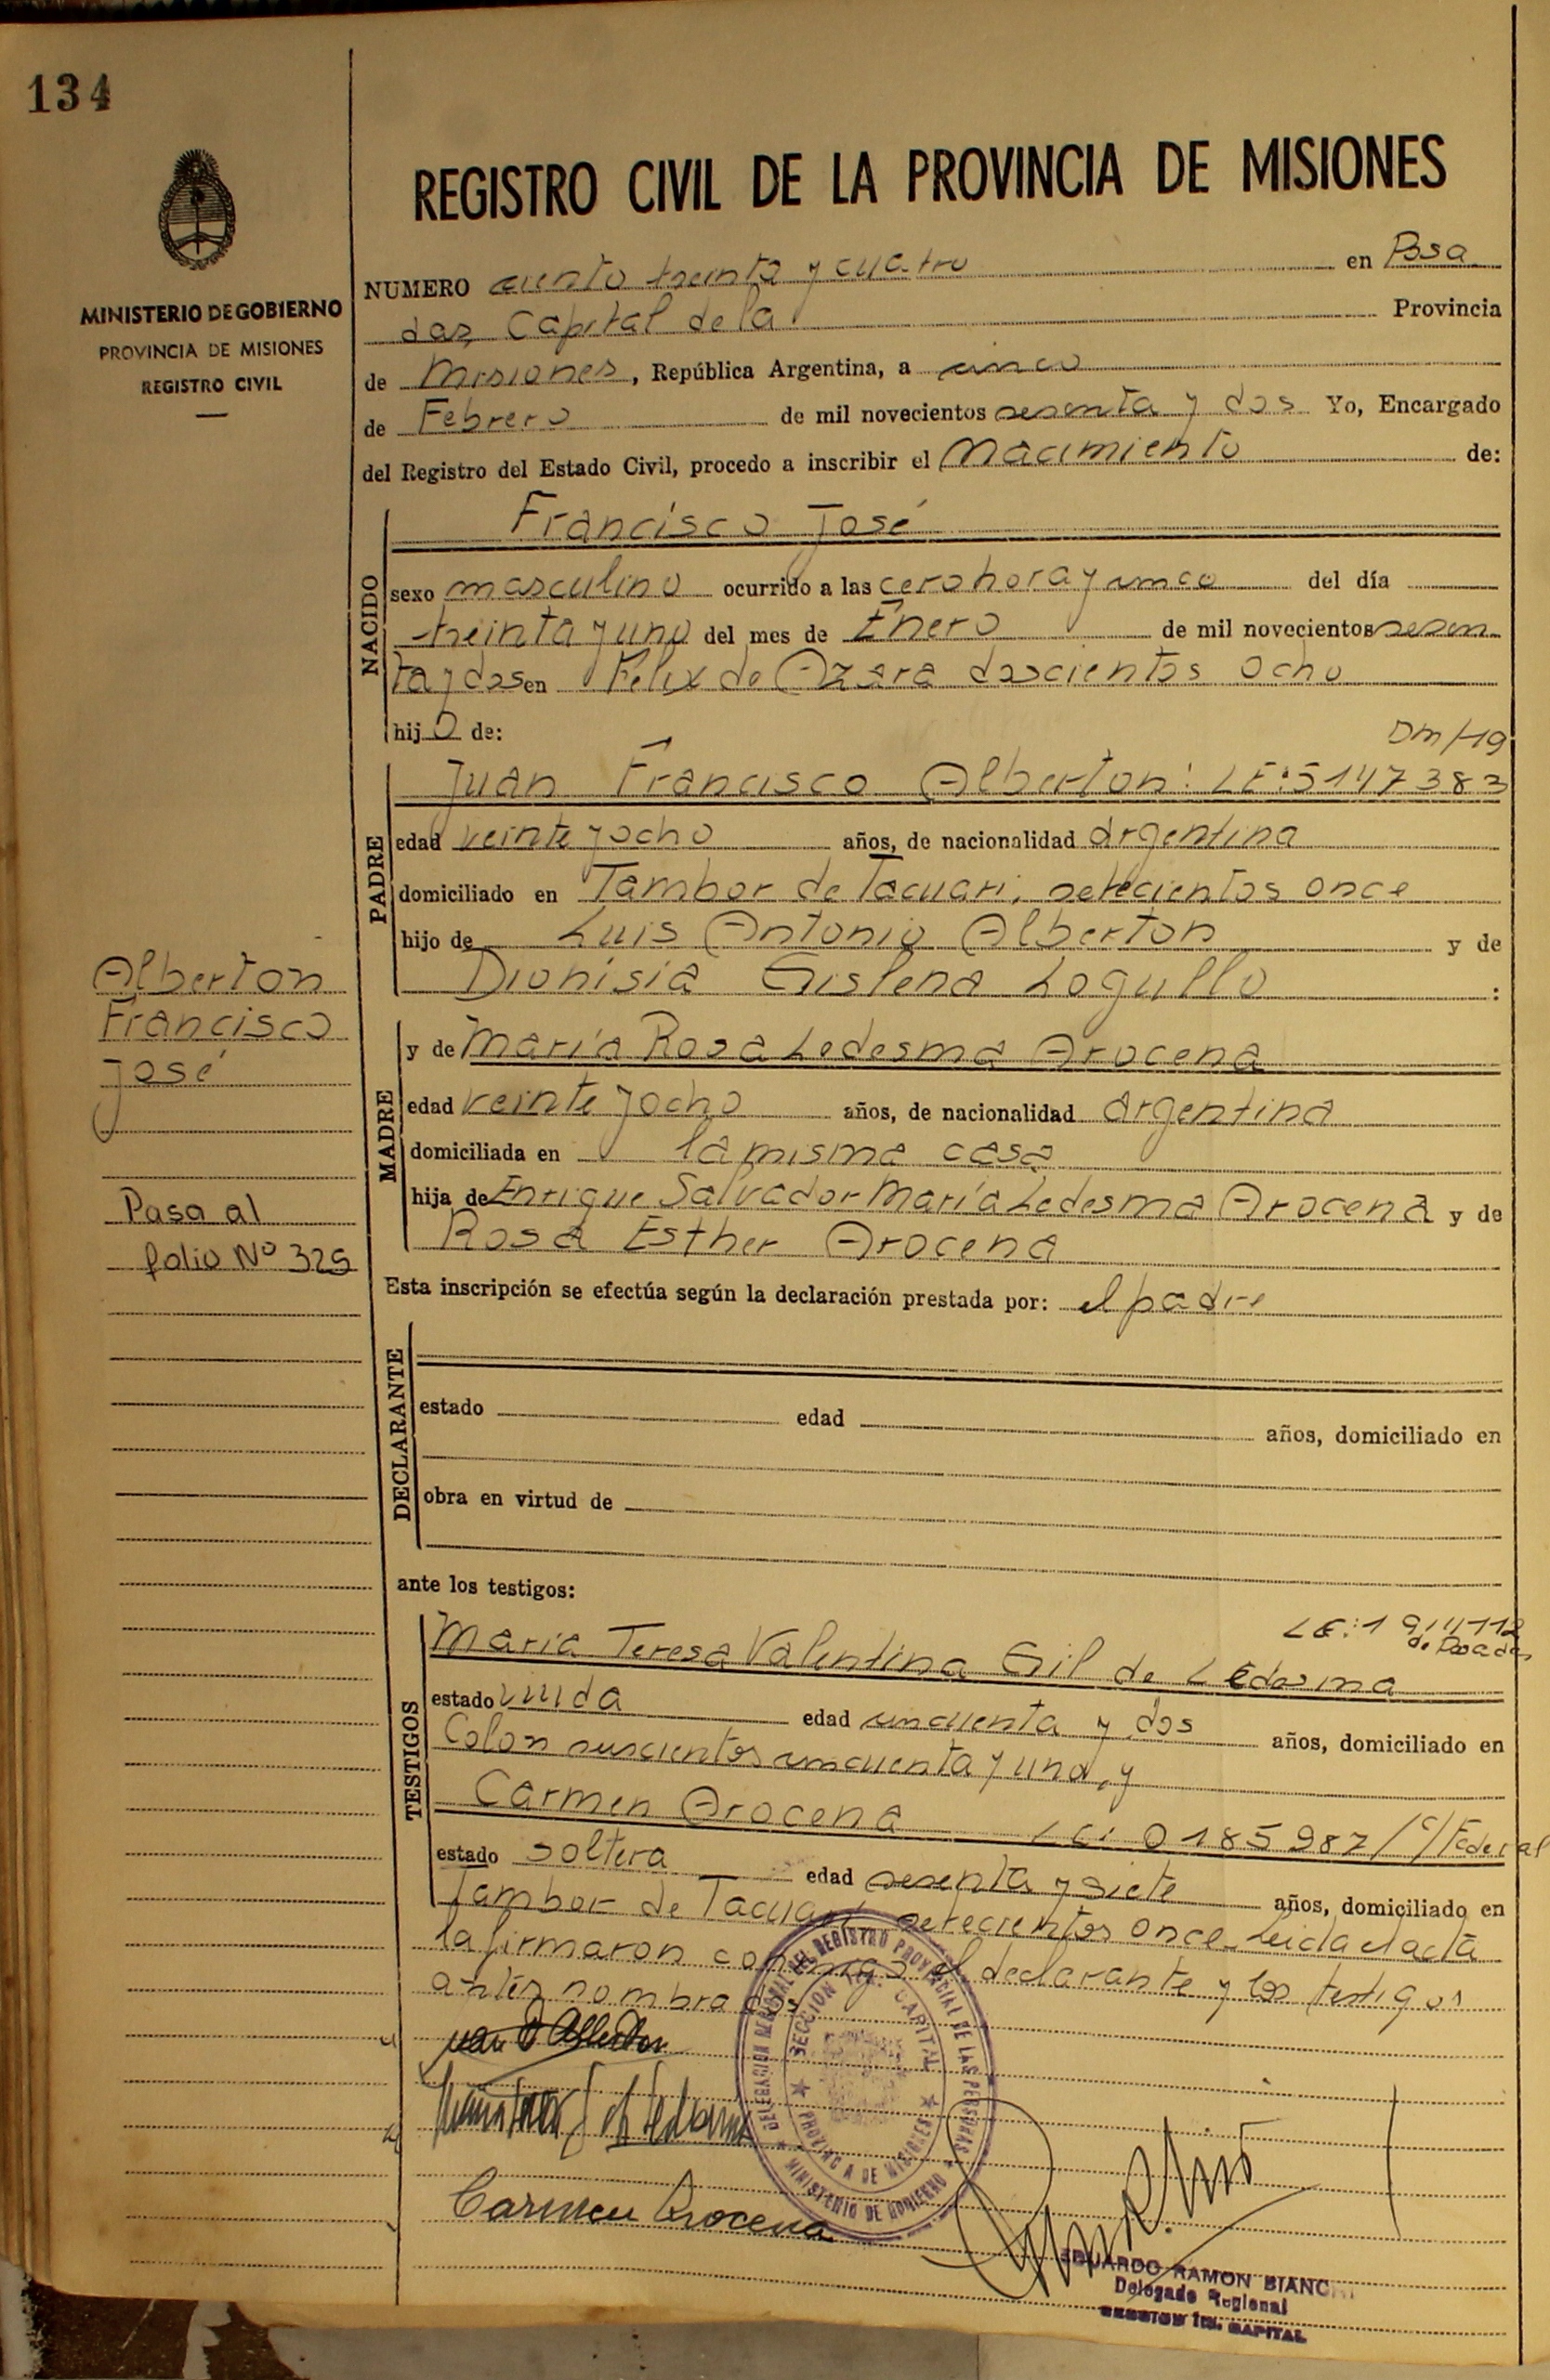 134
MINISTERIO DE GOBIERNO
PROVINCIA DE MISIONES
REGISTRO CIVIL
REGISTRO CIVIL DE LA PROVINCIA DE MISIONES
NUMERO ciento treinta y cuatro en Posa
das, Capital de la Provincia
de Misiones, República Argentina, a cinco
de Febrero de mil novecientos sesenta y dos Yo, Encargado
del Registro del Estado Civil, procedo a inscribir el Nacimiento de:
NACIDO
Francisco José
sexo masculino ocurrido a las cero hora y cinco del día
treinta y uno del mes de Enero de mil novecientos sesen
ta y dos en Felix de Azara doscientos ocho
hijo de:
DM/19
PADRE
Juan Francisco Alberton: LE:5147383
edad veinte y ocho años, de nacionalidad argentina
domiciliado en Tambor de Tacuari, setecientos once
hijo de Luis Antonio Alberton y de
Dionisia Gislena Logullo :
Alberton
Francisco
José
MADRE
y de María Rosa Ledesma Arocena
edad veinte y ocho años, de nacionalidad argentina
domiciliada en la misma casa
hija de Enrique Salvador María Ledesma Arocena y de
Rosa Esther Arocena
Pasa al
folio Nº 325
Esta inscripción se efectúa según la declaración prestada por: el padre
DECLARANTE
estado edad años, domiciliado en
obra en virtud de
ante los testigos:
TESTIGOS
de Posadas
María Teresa Valentina Gil de Ledesma
estado viuda edad cincuenta y dos años, domiciliado en
Colon cincuenta y uno, y
Carmen Arocena LC: 0185987/C/Federal
estado soltera edad sesenta y siete años, domiciliado en
Tambor de Tacuari setecientos once. Leida el acta
la firmaron conmigo el declarante y los testigos
antes nombrados
DELEGACION REGIONAL DEL REGISTRO PROVINCIAL DE LAS PERSONAS
SECCION 1ra. CAPITAL
PROVINCIA DE MISIONES
MINISTERIO DE GOBIERNO
Juan F Alberton
Carmen Arocena
EDUARDO RAMON BIANCHI
Delegado Regional
SECCION 1ra. CAPITAL